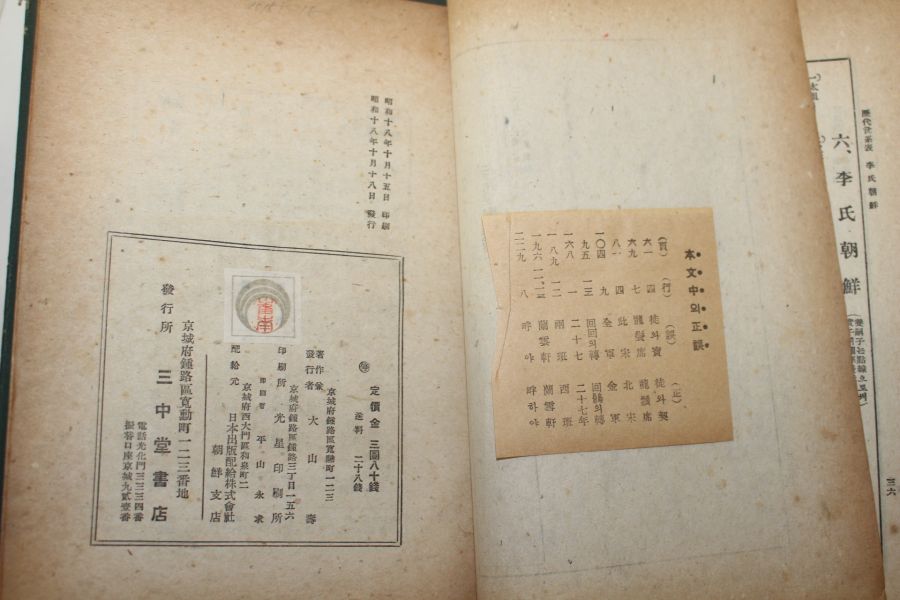 昭和十八年十月十五日 印刷
昭和十八年十月十八日 發行
定價金 三圓八十錢
送料 二十八錢
京城府鍾路區寬勳町一二三
著作兼
發行者 大山壽
京城府鍾路區鍾路三丁目一五六
印刷所 光星印刷所
印刷者 平山永求
京城府西大門區和泉町二
配給元 日本出版配給株式會社
朝鮮支店
京城府鍾路區寬勳町一二三番地
發行所 三中堂書店
電話光化門三三三四番
振替口座京城九貳壹番
本文中의正誤
(頁) (行) (誤) (正)
六一 四 徒와寶 徒와契
六九 七 龍鬢席 龍鬚席
八一 四 此宋 北宋
一〇四 九 全軍 金軍
九五 一三 回回의轉 回鶻의轉
一六八 一 二十七 二十七年
一八九 一二 兩班 西班
一九六 一一、一三 蘭雲軒 蘭雪軒
二二九 八 呼야 呼하야
歷代世系表 李氏朝鮮
六、李氏朝鮮
三六